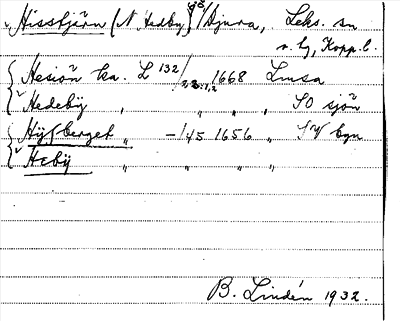 Hissbjärn (N. Hedby) / Djura, Leks. sn
n. bg, Kopp. l.
Hesiön ka. L 132/23:1,2 1668 Lmsa
Hedebÿ " " " , SO sjön
Hÿfberget " -/45 1656 " SV byn
Hebÿ " " " "
B. Lindén 1932.